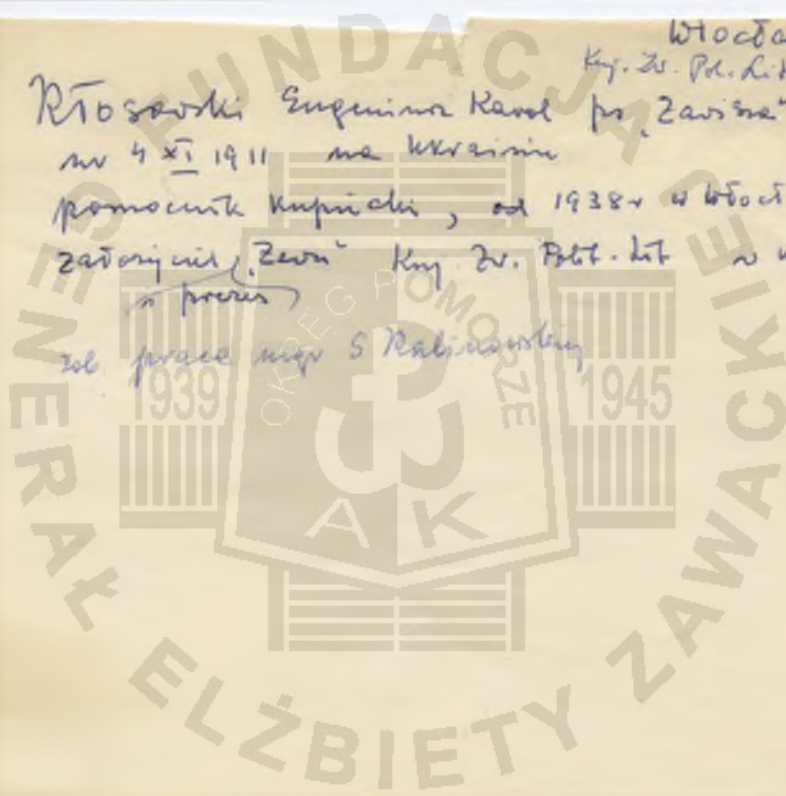 Włocła
Kuj. Zw. Pol. Lit
Kłosowski Eugeniusz Karol ps „Zawisza"
ur 4 XI 1911 na Ukrainie
pomocnik kupiecki, od 1938 r w Włocł
założyciel „Zew" Kuj Zw. Polit. - Lit w
i prezes
zob praca mgr S Kalinowskiej
FUNDACJA GENERAŁ ELŻBIETY ZAWACKIEJ
OKRĘG POMORZE
1939 1945
A K